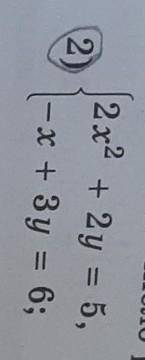 2) { 2x² + 2y = 5,
-x + 3y = 6;